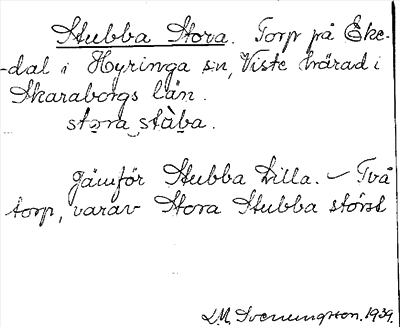 Stubba Stora. Torp på Eke-
-dal i Hyringa sn, Viste härad i
Skaraborgs län.
stora stàba.
Jämför Stubba Lilla. – Två
torp, varav Stora Stubba störst
L.M. Svenungsson. 1939.